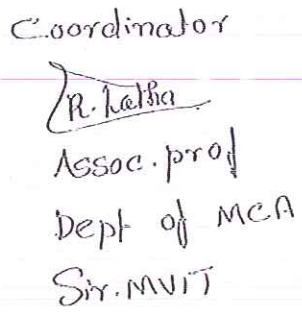 Coordinator
R. Latha
Assoc. prof
Dept of MCA
Sir. MVIT